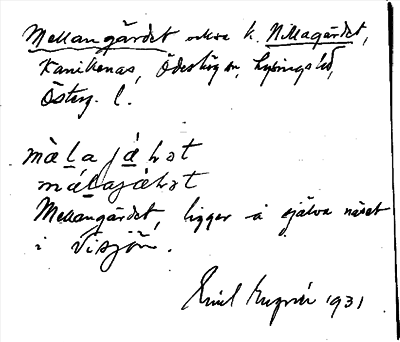 Mellangärdet också k. Nillagärdet,
Kanikenäs, Ödeshögs sn, Lysings hd,
Österg. l.
mὰḷa jάhət
mάḷajὰhət
Mellangärdet, ligger å själva näset
i Visjön.
Emil 1931